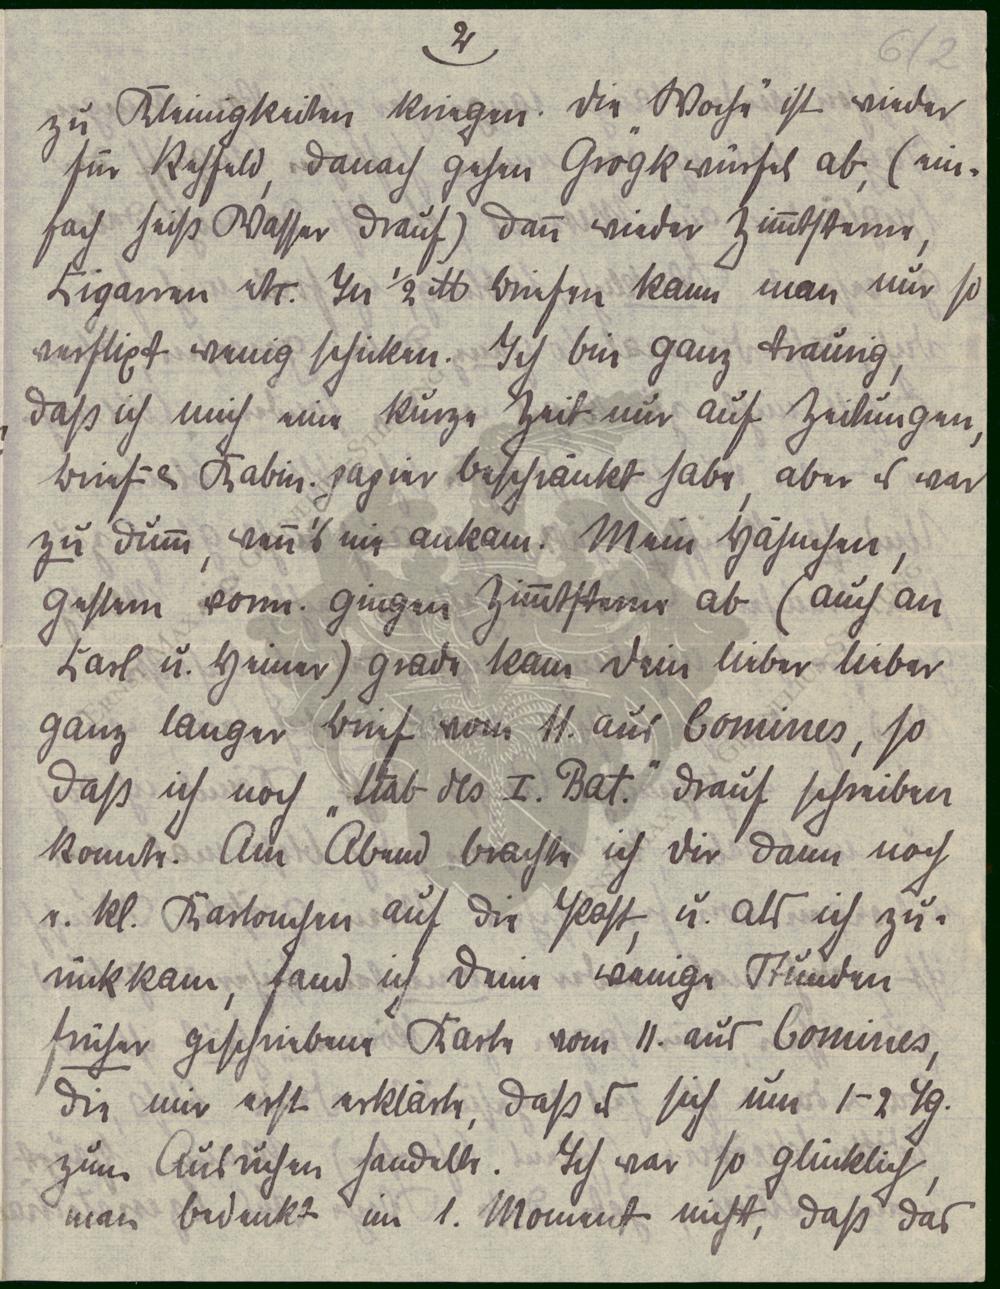 2
6/2
zu Kleinigkeiten kriegen. die „Woche" ist wieder
für Rehfeld, danach gehen Grogkwürfel ab, (ein-
fach heiß Wasser drauf) dann wieder Zimmtsterne,
Cigarren etc. In ½ ℔ briefen kann man nur so
verflixt wenig schicken. Ich bin ganz traurig,
daß ich mich eine kurze Zeit nur auf Zeitungen,
brief- & Kabin. papier beschränkt habe, aber es war
zu dumm, wenn's nie ankam. Mein Hähnchen,
gestern vorm. gingen Zimmtsterne ab (auch an
Carl u. Heiner) grade kam Dein lieber lieber
ganz langer brief vom 11. aus Comines, so
daß ich noch „Stab des I. Bat." drauf schreiben
konnte. Am Abend brachte ich dir dann noch
e. kl. Kartonchen auf die Post, u. als ich zu-
rückkam, fand ich Deine wenige Stunden
früher geschriebene Karte vom 11. aus Comines,
die mir erst erklärte, daß es sich um 1-2 Tg.
zum Ausruhen handelte. Ich war so glücklich,
man bedenkt im 1. Moment nicht, daß das